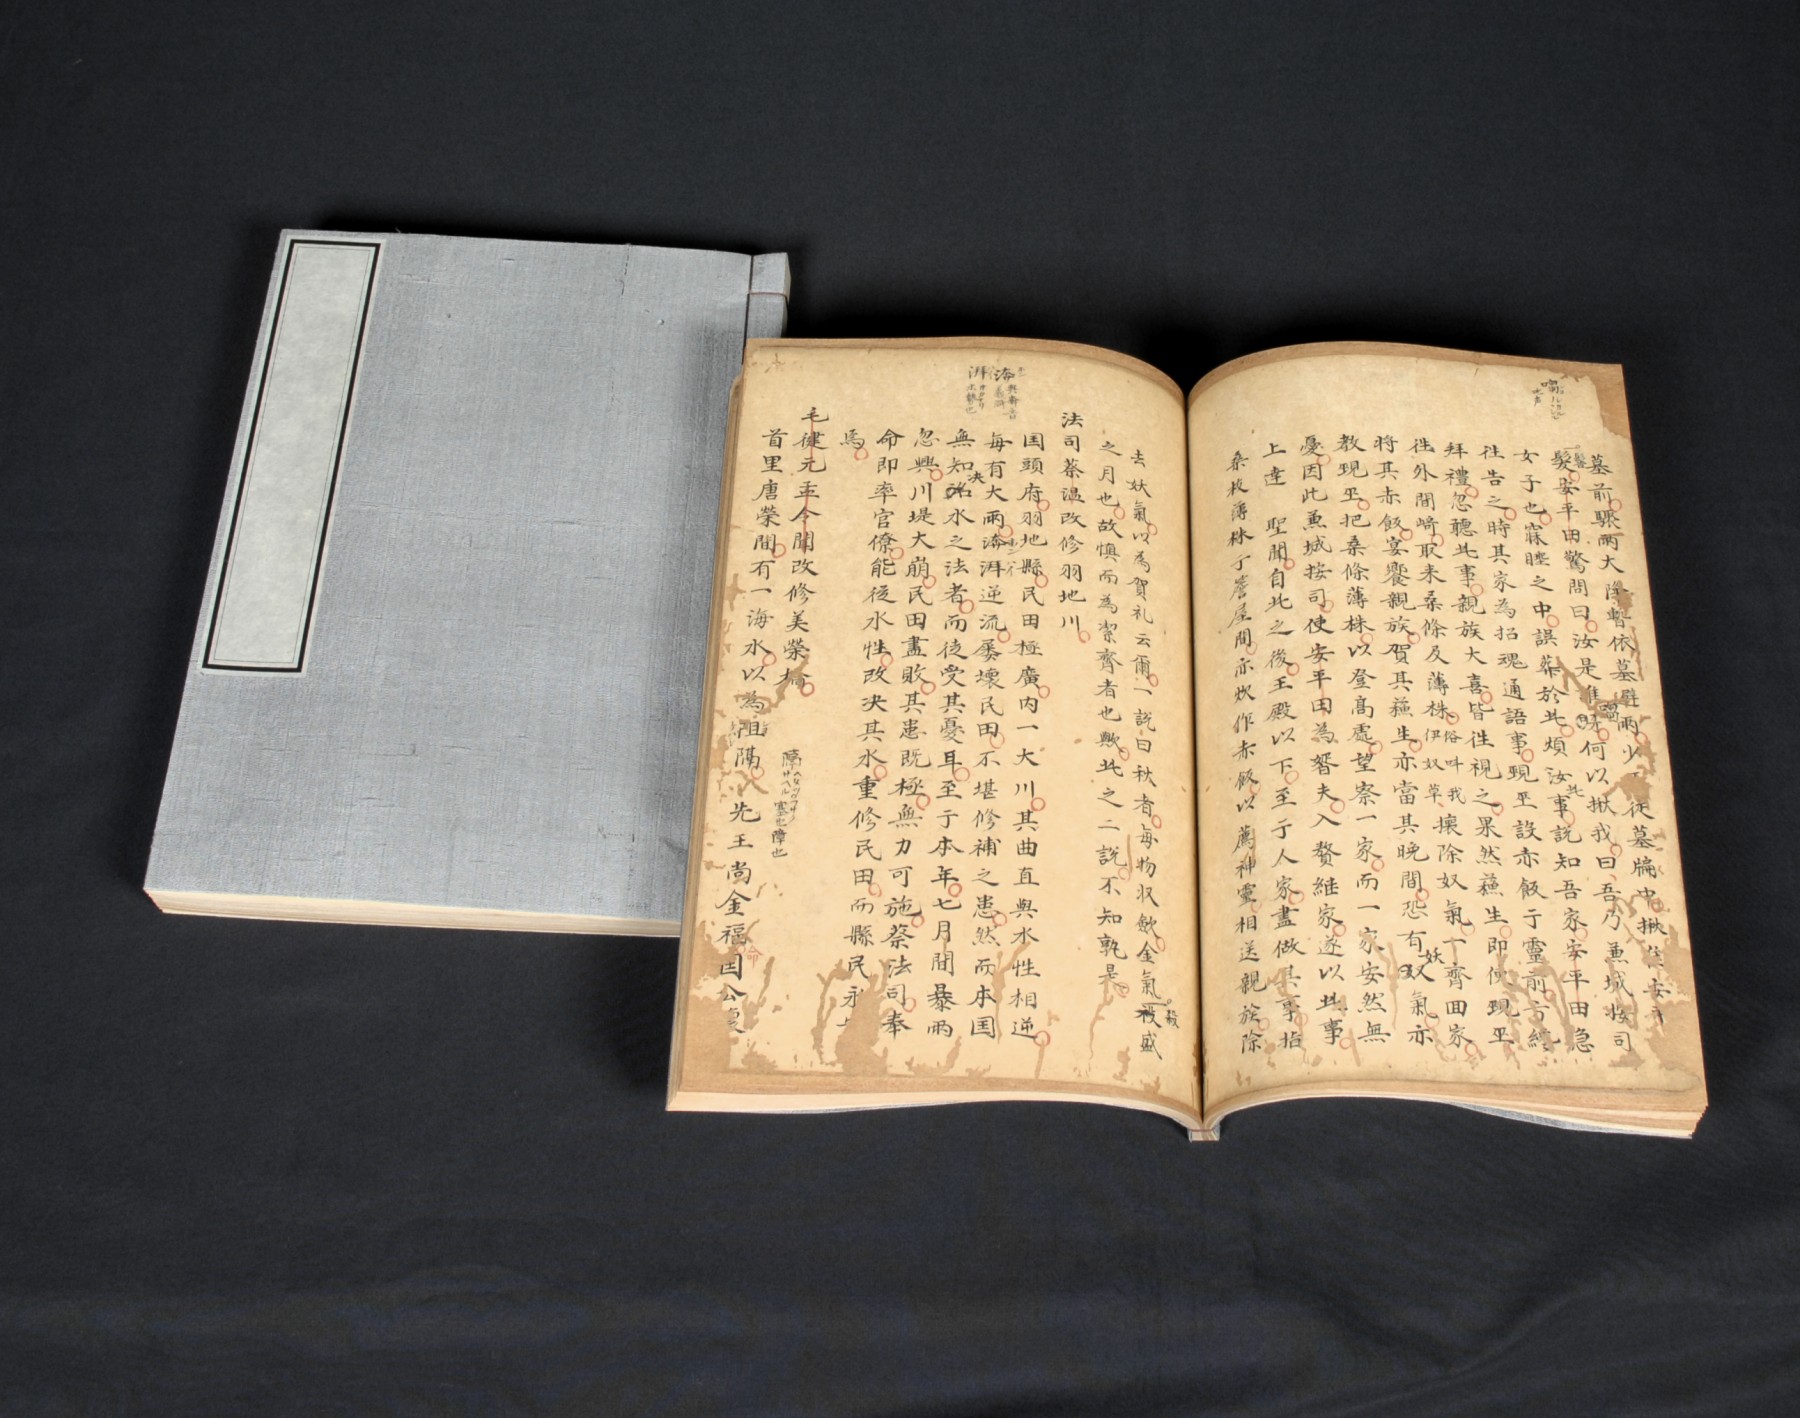 墓前驟雨大降暫依墓避雨少
髮安平田驚問曰汝是誰呀何以揪我曰吾乃兼城按司
女子也寐睡之中誤葬於此煩汝此事説知吾家安平田急
徃告之時其家為招魂通語事覡巫設赤飯于靈前方纔
拜禮忽聽此事親族大喜皆徃視之果然蘓生即使覡巫
徃外間﨑取来桑條及薄株俗呌我攘除奴氣一齊囬家
伊奴草
將其赤飯宴饗親族賀其蘓生亦當其晚間恐有妖氣亦
教覡巫把桑條薄株以登髙處望察一家而一家安然無
憂因此兼城按司使安平田為壻夫入贅継家遂以此事
上達 聖聞自此之後王殿以下至于人家盡做其事指
桑枝薄株于簷屋間亦炊作赤飯以薦神靈相送親族除
去妖氣以為賀礼云爾一説曰秋者每物収歛金氣
殺盛
之月也故愼而為潔齊者也歟此之二説不知孰是
法司蔡温改修羽地川
囯頭府羽地縣民田極廣内一大川其曲直與水性相逆
每有大雨渰湃逆流屢壊民田不堪修補之患然而本囯
無知決水之法者而徒受其憂耳至于本年七月間暴雨
忽興川堤大崩民田盡敗其患既極無力可施蔡法司奉
命即率官僚能従水性改决其水重修民田而縣民永
焉
毛健元孟今聞改修美榮橋
首里唐榮間有一海水以為阻隔 先王尚金福囯公
隔
塞也障也